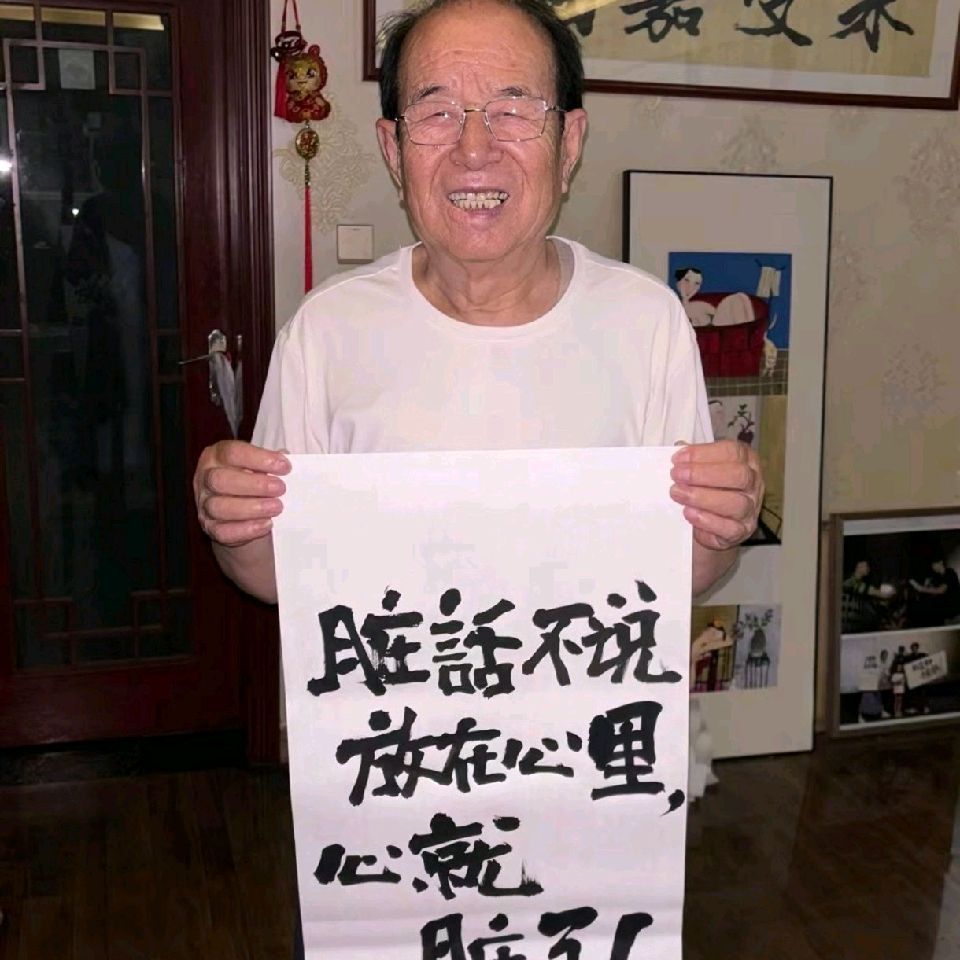 脏話不说
放在心里,
心就
脏了!